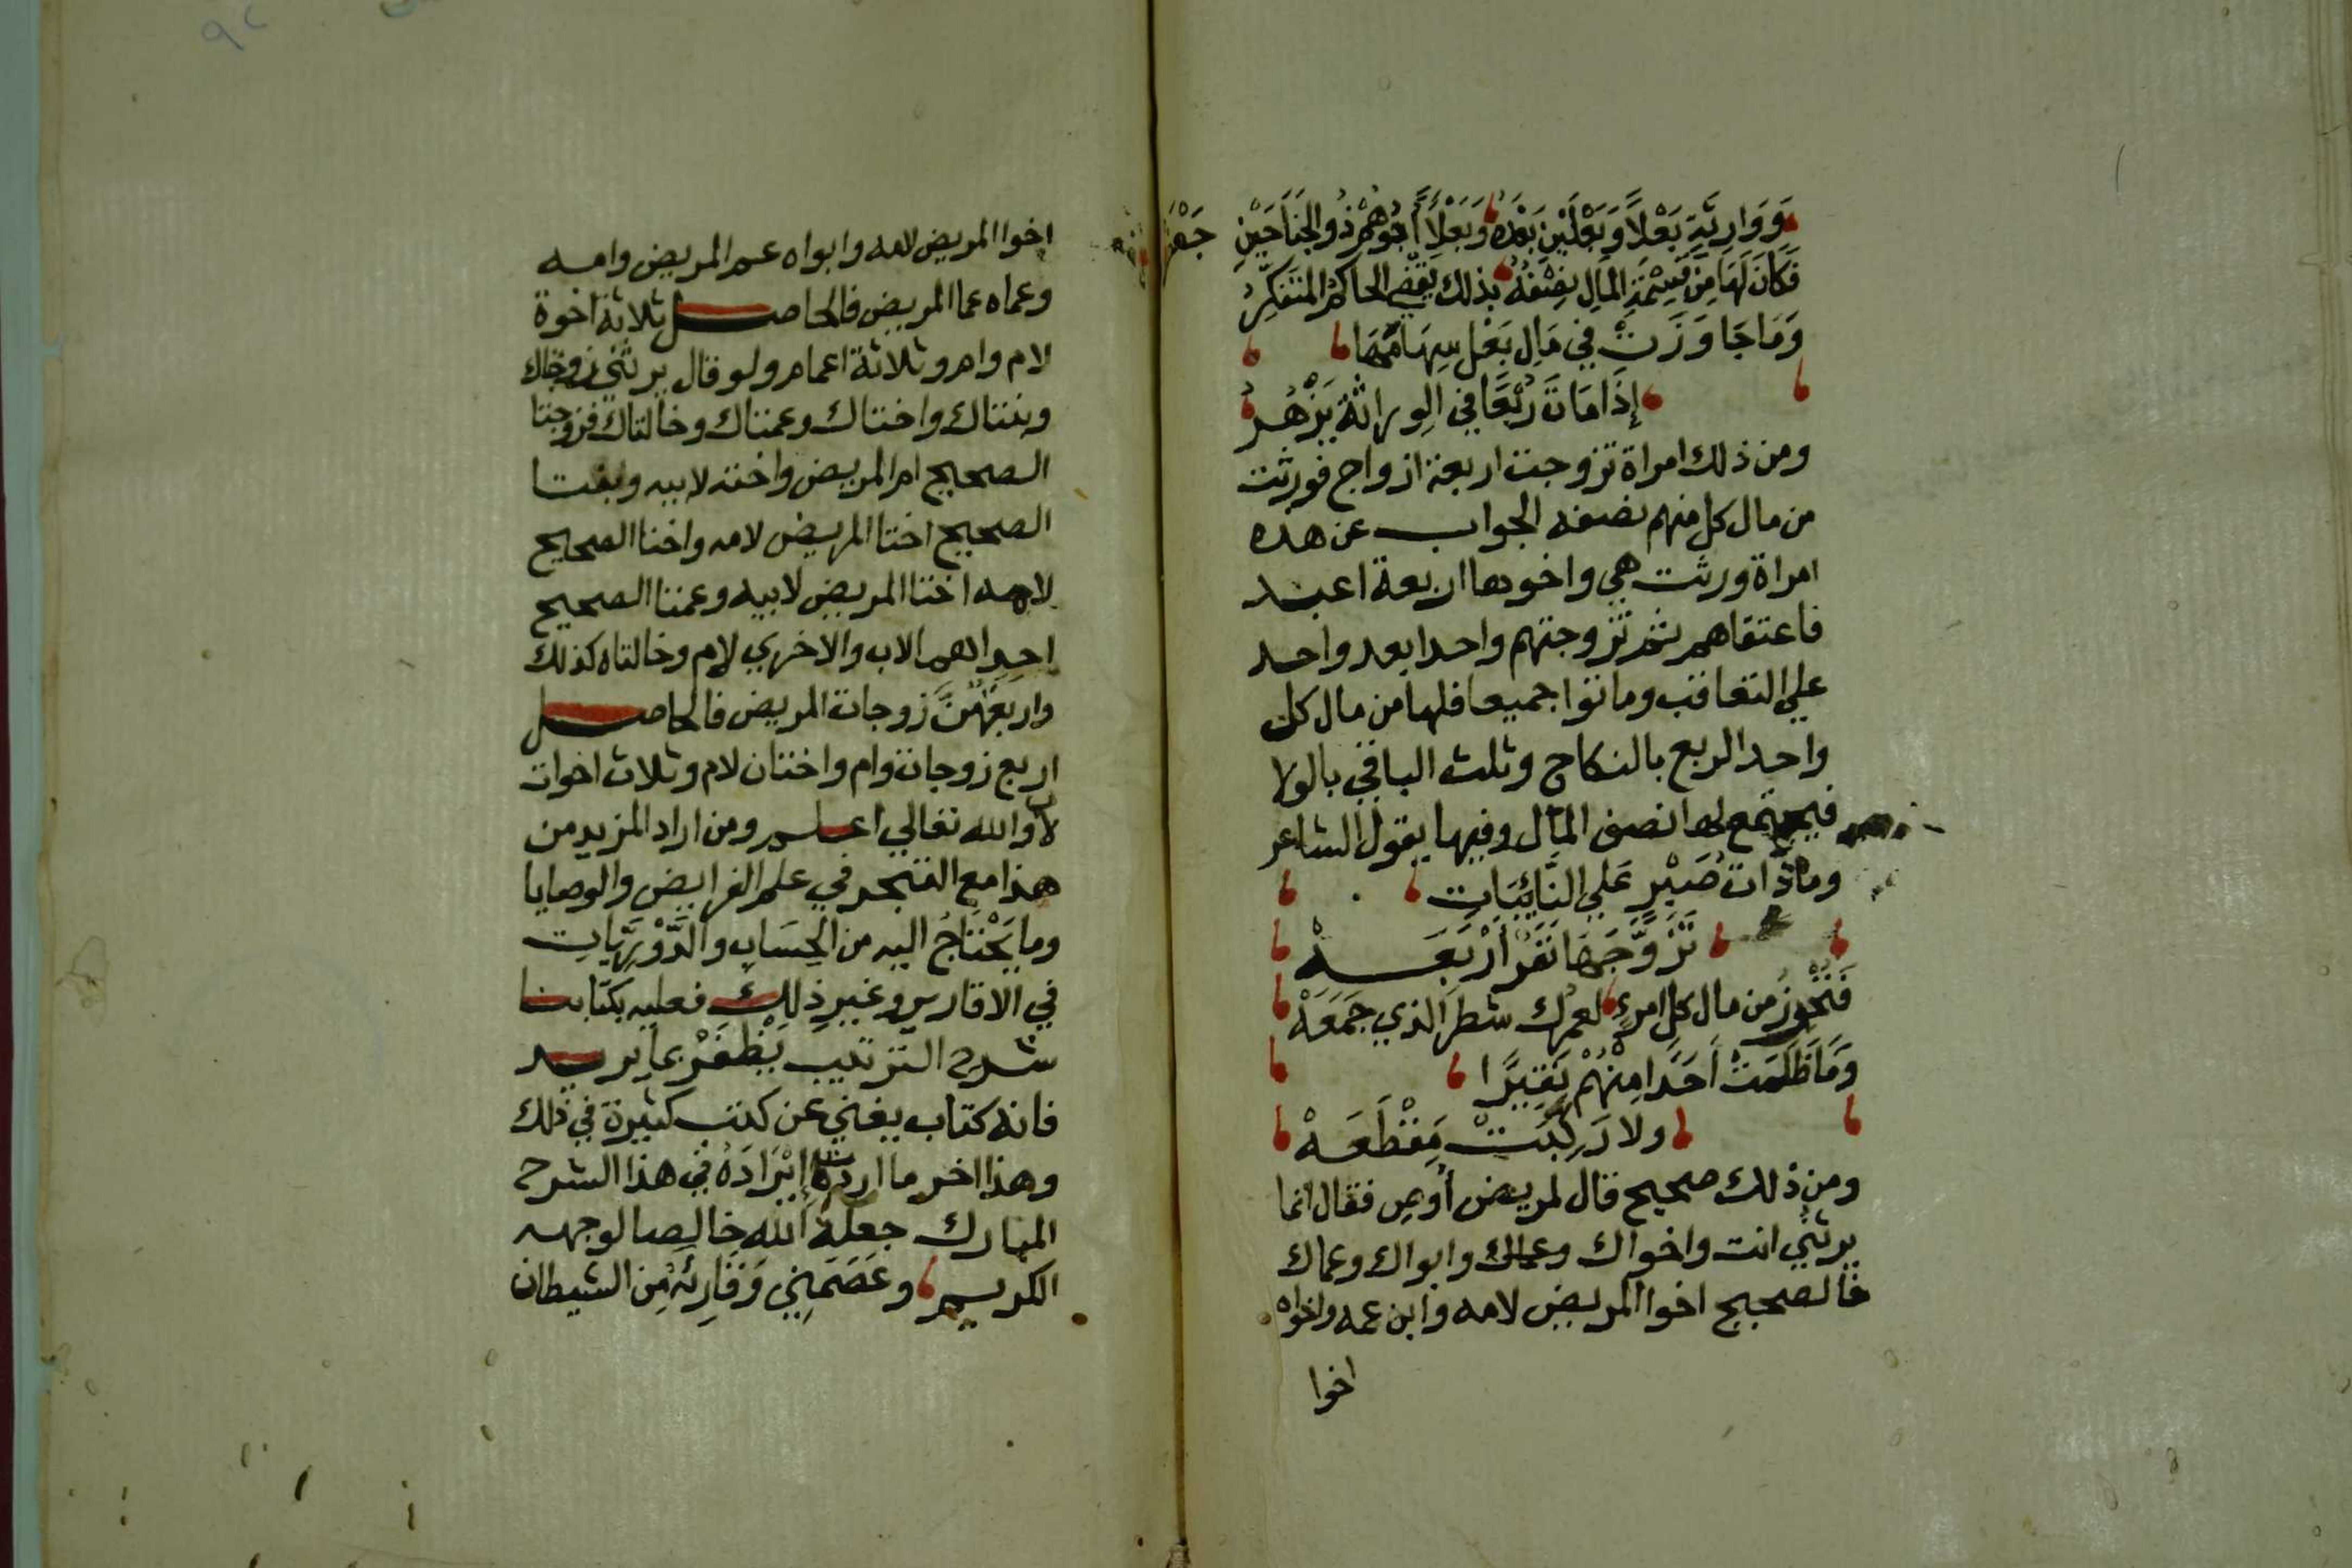 وَوَارِثَةٍ بَعْلاً وَبَعْلَيْنِ بَعْدَهُ وَبَعْلاً أَخُوهُمْ ذُو الجَنَاحَيْنِ جَعْفَرُ
فَكَانَ لَهَا مِنْ قِسْمَةِ المَالِ نِصْفُهُ بذلك يَقْضِي الحَاكِمُ المتَفَكِّرُ
وَمَا جَاوَزَتْ فِي مَالِ بَعْلٍ سِهَامُهَا
إِذَا مَاتَ رُبْعًا فِي الوِراثَةِ يَزْهُرُ
ومن ذلك امراة تزوجت اربعة ازواج فورثت
من مال كل منهم نصفه الجواب عن هذه
امراة ورثت هي واخوها اربعة اعبد
فاعتقاهم ثم تزوجتهم واحدا بعد واحد
علي التعاقب وماتوا جميعا فلها من مال كل
واحد الربع بالنكاح وثلث الباقي بالولا
فيجتمع لها نصف المال وفيها يقول الشاعر
وما ذات صَبْرٍ عَلي النَّائِبَاتِ
تَزَوَّجَهَا نَفَرٌ أَرْبَعَــهْ
فَتَحُوزُ من مال كلِ امرءٍ لعمرك شطرَ الذي جَمَعَهْ
وَمَا ظَلَمَتْ أَحَدًا مِنْهُمْ نَقِيرًا
ولا رَكِبَتْ مَقْطَعَهْ
ومن ذلك صحيح قال لمريض أوصِ فقال انما
يرثني انت واخواك وعماك وابواك وعماك
فالصحيح اخوا المريض لامه وابن عمه واخواه
اخوا
اخوا المريض لامه وابواه عم المريض وامه
وعماه عما المريض فالحاصل ثلاثة اخوة
لام وام وثلاثة اعمام ولو قال يرثني زوجتاك
وبنتاك واختاك وعمتاك وخالتاك فزوجتا
الصحيح ام المريض واخته لابيه وبنتا
الصحيح اختا المريض لامه واختا الصحيح
لامه اختا المريض لابيه وعمتا الصحيح
احداهما لاب والاخري لام وخالتاه كذلك
واربعهُنَّ زوجات المريض فالحاصل
اربع زوجات وام واختان لام وثلاث اخوات
لاب والله تعالي اعلم ومن اراد المزيد من
هذا مع التبحر في علم الفرايض والوصايا
وما يَحْتَاجُ اليه من الحِسَابِ والدَّوْرِيَّاتِ
في الاقارير وغيرِ ذلك فعليه بكتابنا
شرح الترتيب يَظْفَرْ بما يريد
فانه كتاب يغني عن كتب كثيرة في ذلك
وهذا اخر ما اردتُ إِيْرَادَهُ في هذا الشرح
المبارك جعلهُ اللّه خالِصا لوجهه
الكريم وعَصَمَنِي وَقَارِئَهُ مِن الشيطان